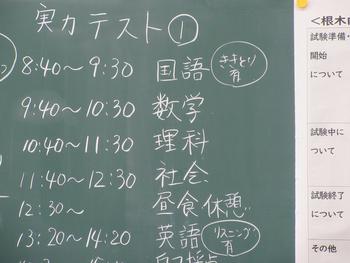 実力テスト①
8:40～9:30 国語 ききとり有
9:40～10:30 数学
10:40～11:30 理科
11:40～12:30 社会
12:30～ 昼食休憩
13:20～14:20 英語 リスニング有
＜根木
試験準備・
開始
について
試験中に
ついて
試験終了
について
その他